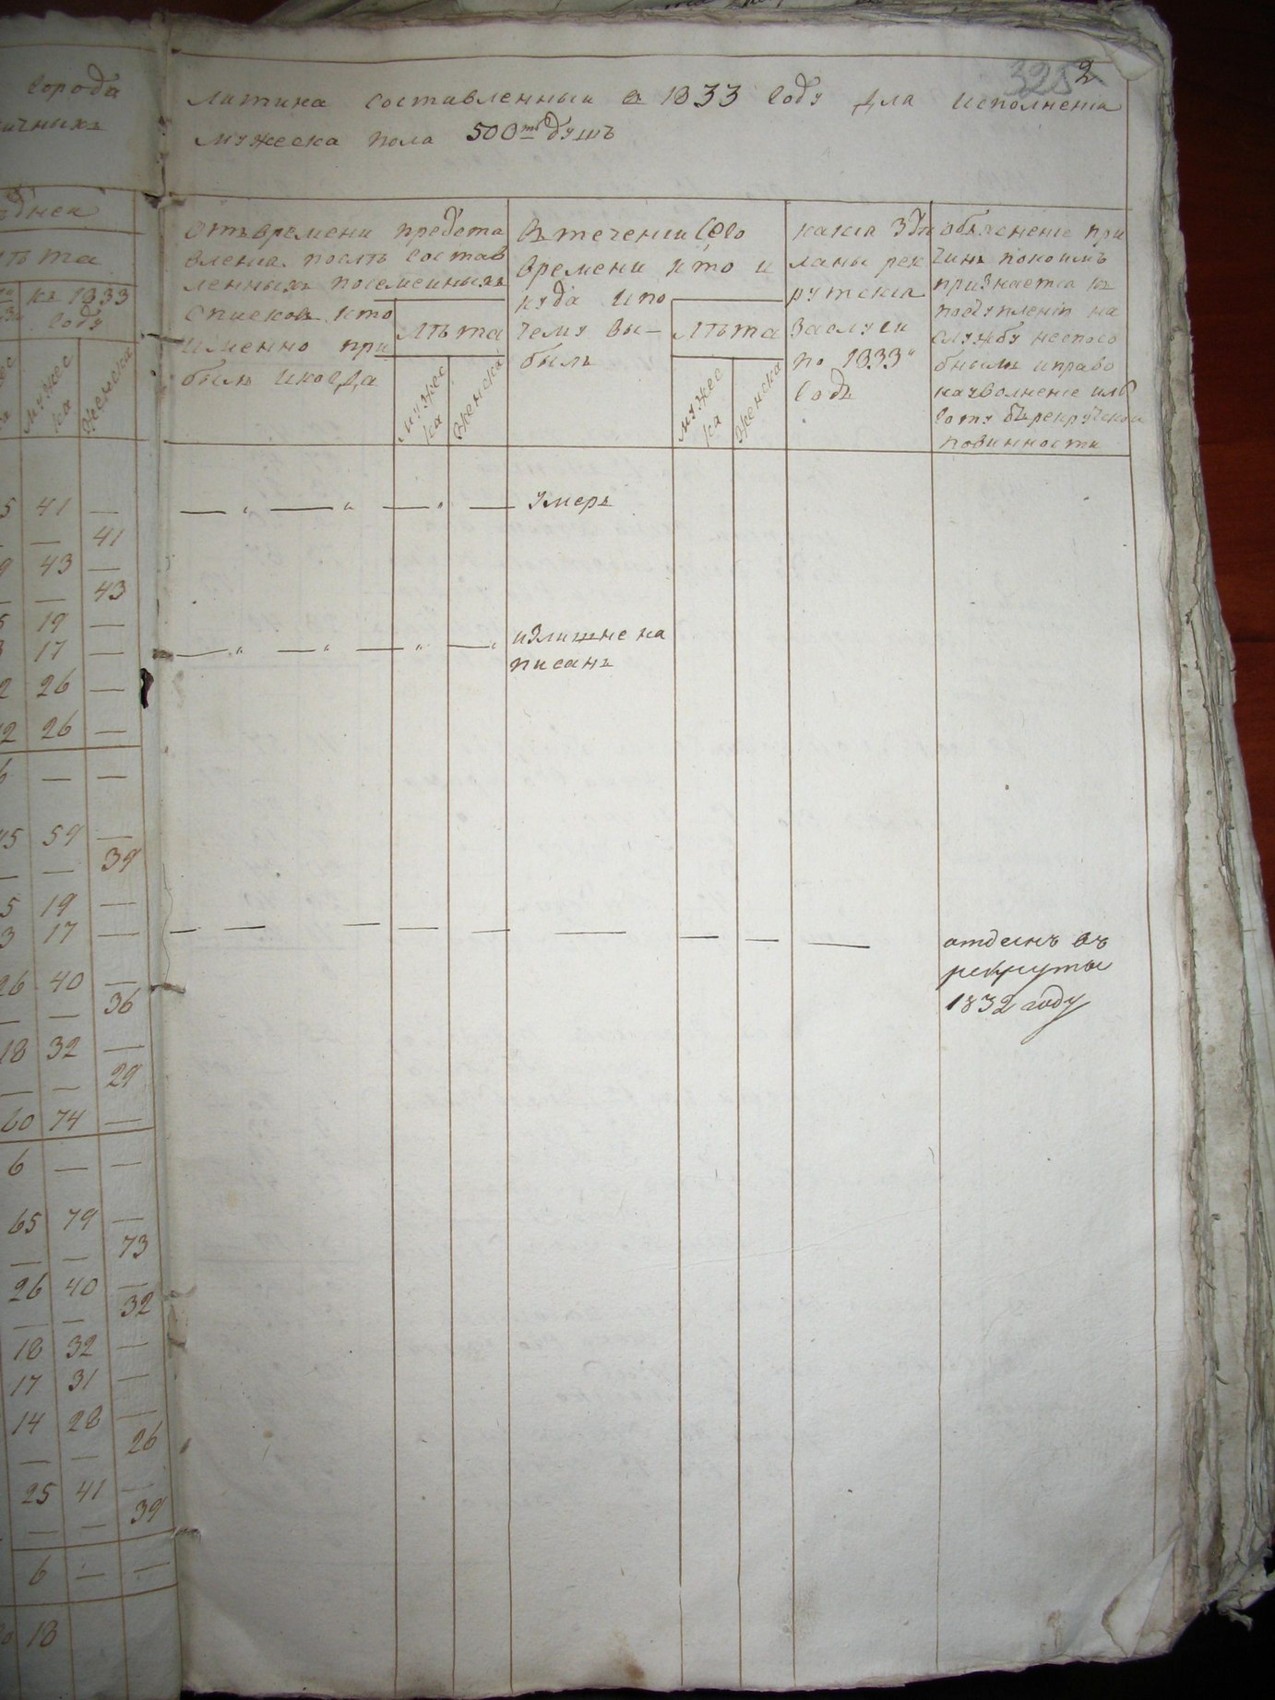 города
ичныхъ
къ 1833
году
мужес
ка
женска
41 —
— 41
43 —
— 43
19 —
17 —
26 —
26 —
— —
59 —
— 39
19 —
17 —
40 —
— 36
18 32 —
— — 29
60 74 —
6 — —
65 79 —
— — 73
26 40 —
— — 32
18 32 —
17 31 —
14 28 —
— — 26
25 41 —
— — 39
6 — —
18
325 2
составленный в 1833 году для исполнения
мужеска пола 500тъ душъ
отъ времени предста
вления послѣ состав
ленныхъ посемейныхъ
списковъ кто
именно при
былъ и когда
лѣта
мужес
ка
женска
въ течении сего
времени кто и
куда и по
чему вы-
былъ
лѣта
мужес
ка
женска
ланы рек
рутския
заслуги
по 1833й
годъ
объяснение при
чинъ по коимъ
признается къ
поступлению на
службу неспосо
бнымъ и право
на увольнение
повинности
— „ — „ — „ — умеръ
— „ — „ — „ — „ излишне на
писанъ
— — — — — — — — — отданъ въ
рекруты
1832 году